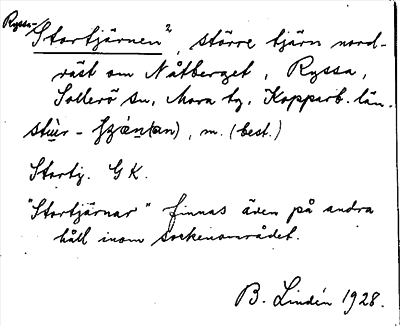 Ryssa-
"Stortjärnen"², större tjärn nord-
väst om Nåtberget, Ryssa,
Sollerö sn, Mora tg, Kopparb. län.
stùr- (an), m. (best.)
Stortj. GK.
"Stortjärnar" finnas även på andra
håll inom sockenområdet.
B. Lindén 1928.